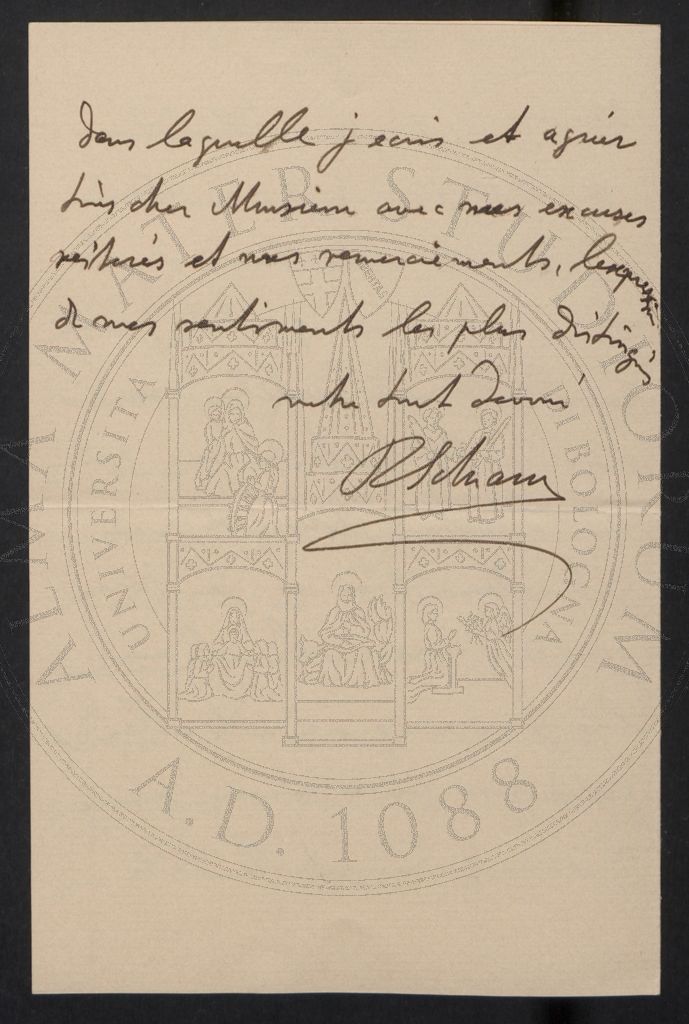 dans laquelle j'ecris et agréer
très cher Monsieur avec mes excuses
réitérés et mes remerciements, l'expression
de mes sentiments les plus distingués
votre tout dévoué
ALMA MATER STUDIORUM
UNIVERSITA DI BOLOGNA
A.D. 1088